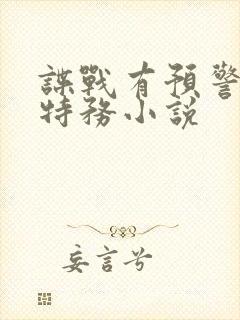 諜戰有預警
特務小說
妄言兮